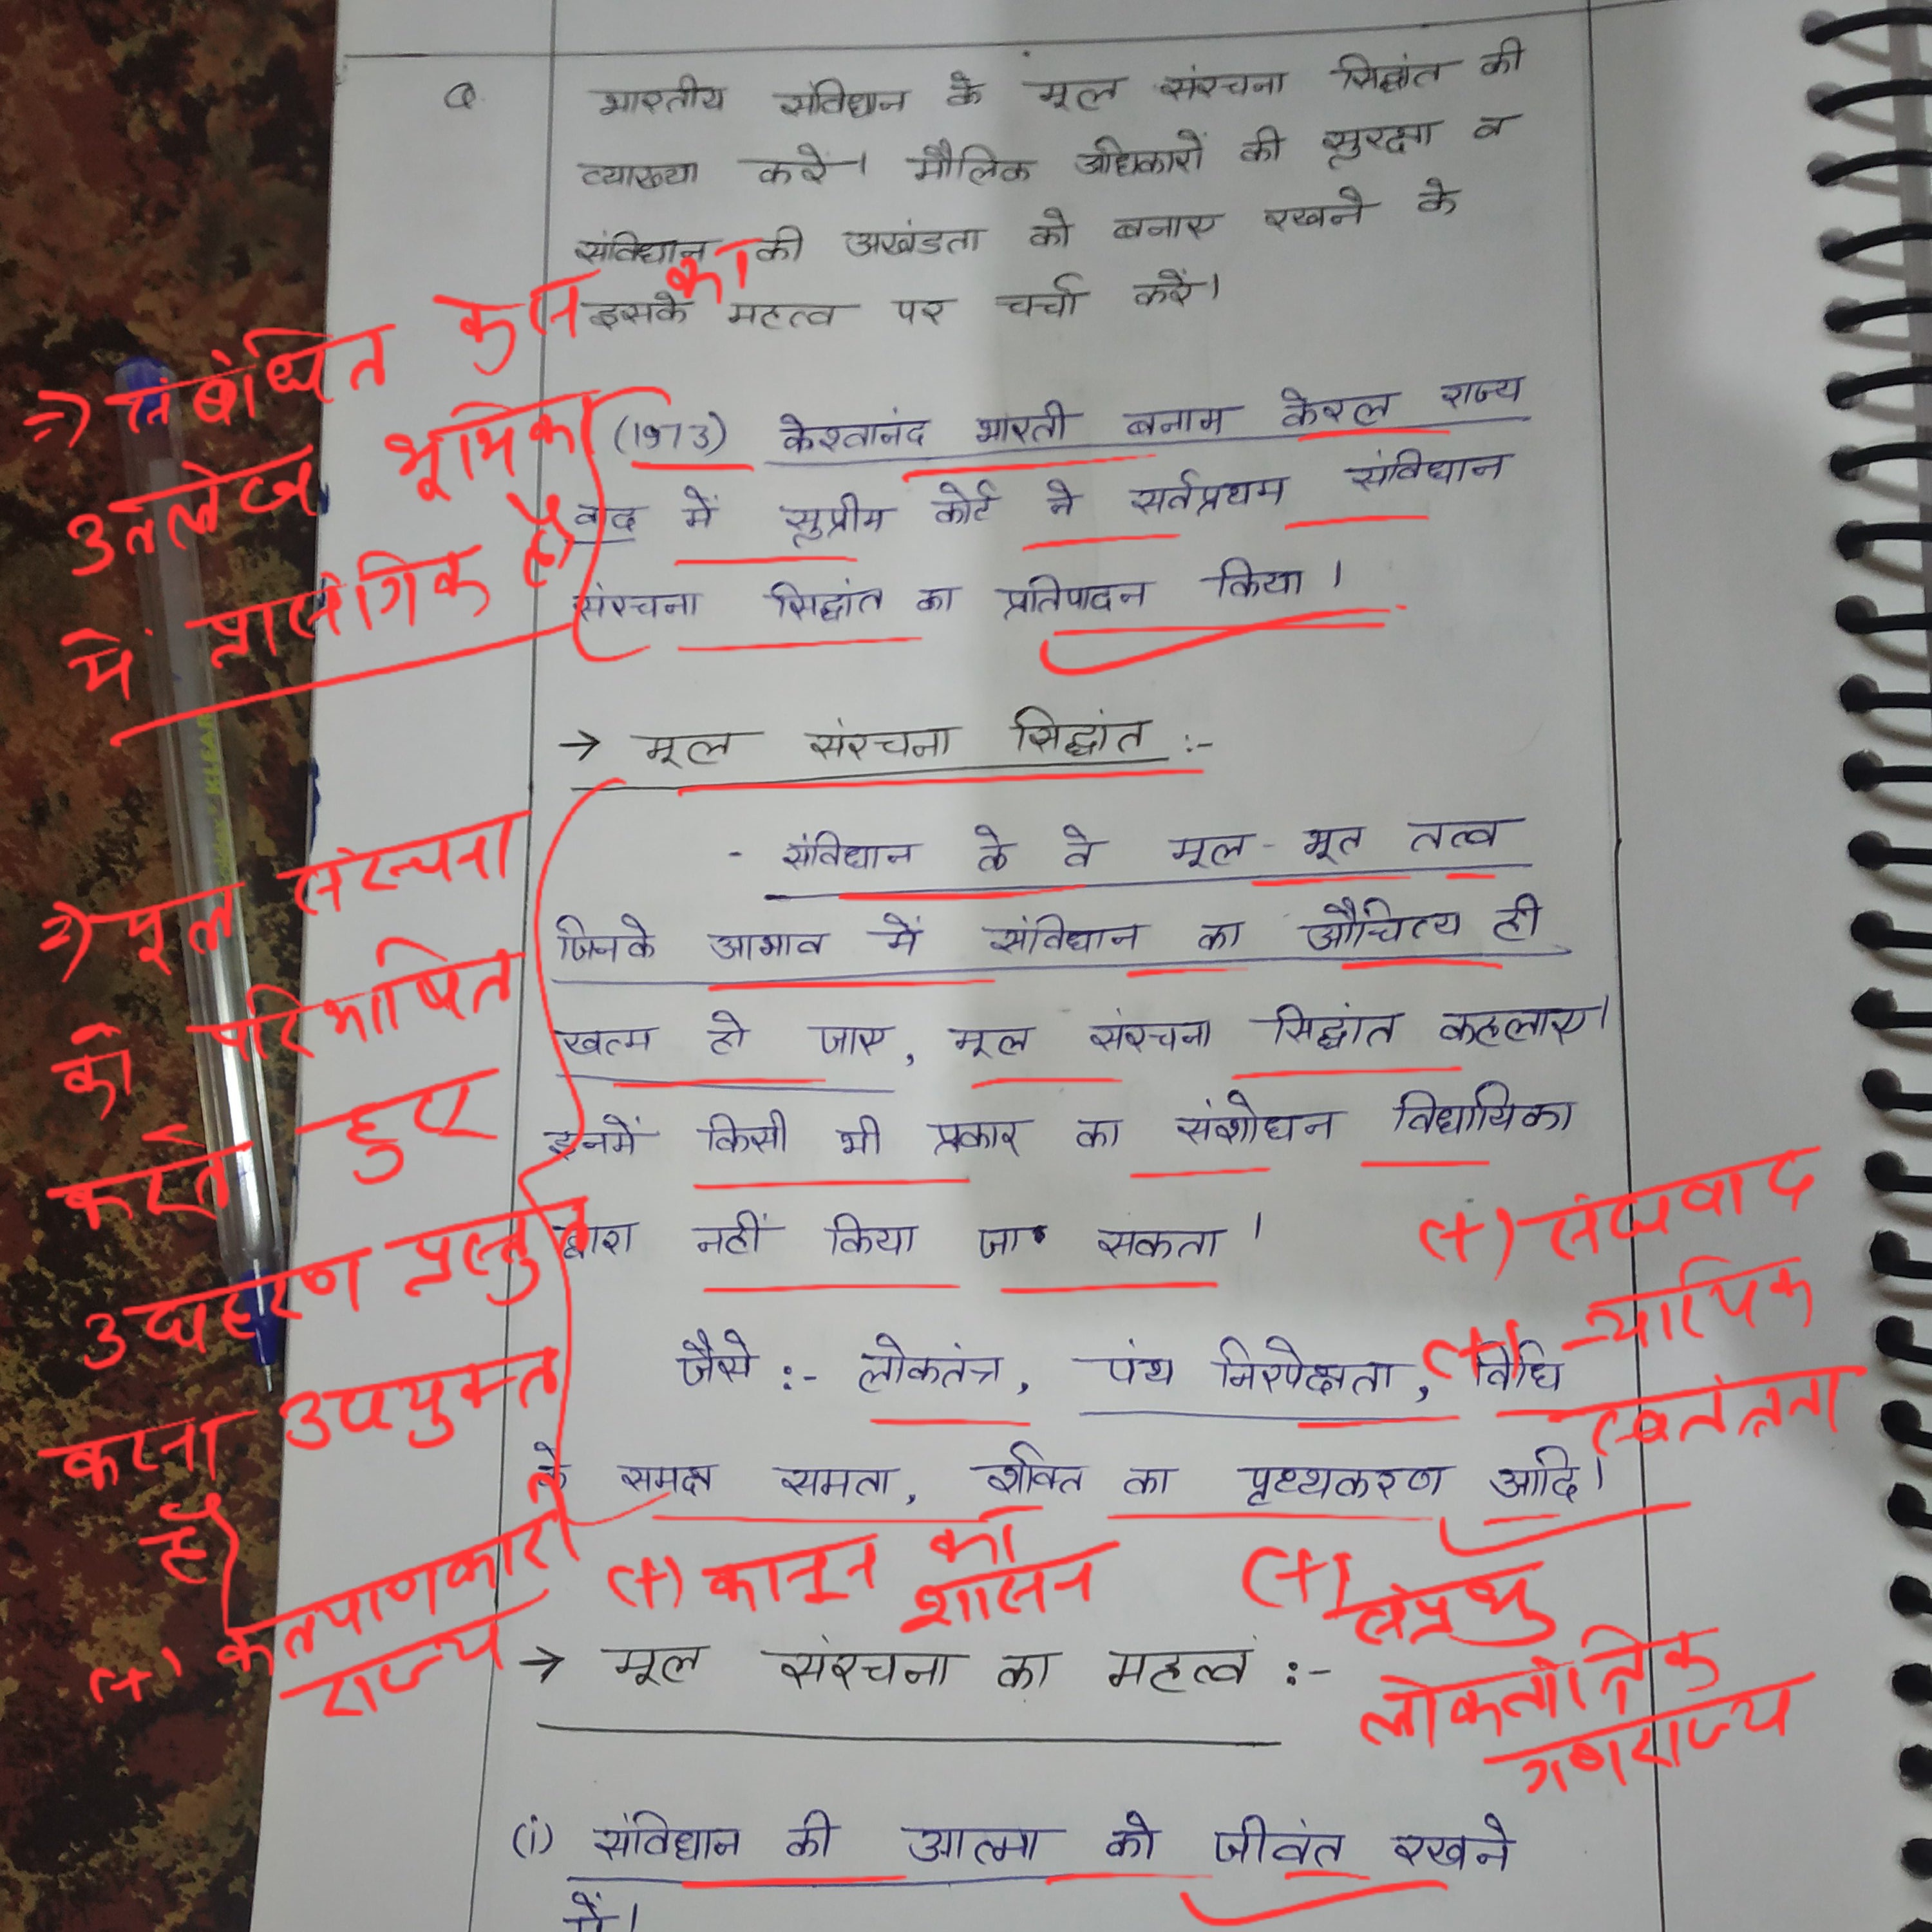 Q. भारतीय संविधान के मूल संरचना सिद्धांत की
व्याख्या करें। मौलिक अधिकारों की सुरक्षा व
संविधान की अखंडता को बनाए रखने के
इसके महत्व पर चर्चा करें।
=) संबंधित केस का
उल्लेख भूमिका
में प्रासंगिक है)
(1973) केशवानंद भारती बनाम केरल राज्य
वाद में सुप्रीम कोर्ट ने सर्वप्रथम संविधान
संरचना सिद्धांत का प्रतिपादन किया।
→ मूल संरचना सिद्धांत :-
- संविधान के वे मूल-भूत तत्व
जिनके आभाव में संविधान का औचित्य ही
खत्म हो जाए, मूल संरचना सिद्धांत कहलाए।
इनमें किसी भी प्रकार का संशोधन विधायिका
द्वारा नहीं किया जा सकता।
=) मूल संरचना
को परिभाषित
करते हुए
उदाहरण प्रस्तुत
करना उपयुक्त
है)
(+) संघवाद
(+) न्यायिक
स्वतंत्रता
जैसे :- लोकतंत्र, पंथ निरपेक्षता, विधि
के समक्ष समता, शक्ति का पृथ्थकरण आदि।
(+) कल्याणकारी
राज्य
(+) कानून का
शासन
(+) संप्रभु
लोकतांत्रिक
गणराज्य
→ मूल संरचना का महत्व :-
(i) संविधान की आत्मा को जीवंत रखने
में।